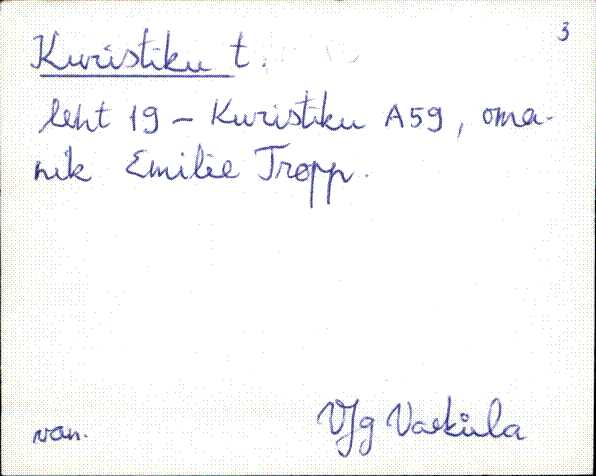 3
Kuristiku t.
leht 19 - Kuristiku A59, oma-
nik Emilie Tropp.
van.
VJg Vaeküla